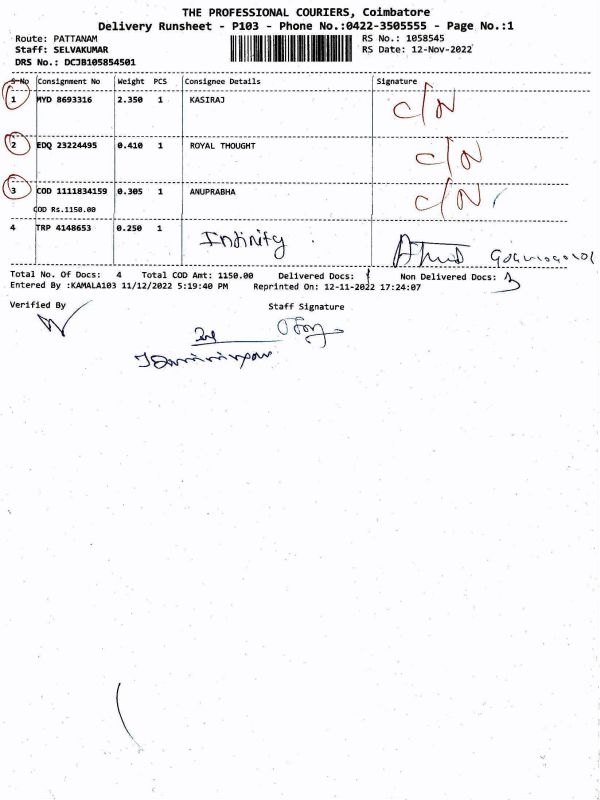 THE PROFESSIONAL COURIERS, Coimbatore
Delivery Runsheet - P103 - Phone No.:0422-3505555 - Page No.:1
Route: PATTANAM RS No.: 1058545
Staff: SELVAKUMAR RS Date: 12-Nov-2022
DRS No.: DCJB105854501
S-No Consignment No Weight PCS Consignee Details Signature
1 MYD 8693316 2.350 1 KASIRAJ C/N
2 EDQ 23224495 0.410 1 ROYAL THOUGHT C/N
3 COD 1111834159 0.305 1 ANUPRABHA C/N
COD Rs.1150.00
4 TRP 4148653 0.250 1 Infinity
Total No. Of Docs: 4 Total COD Amt: 1150.00 Delivered Docs: 1 Non Delivered Docs: 3
Entered By :KAMALA103 11/12/2022 5:19:40 PM Reprinted On: 12-11-2022 17:24:07
Verified By Staff Signature